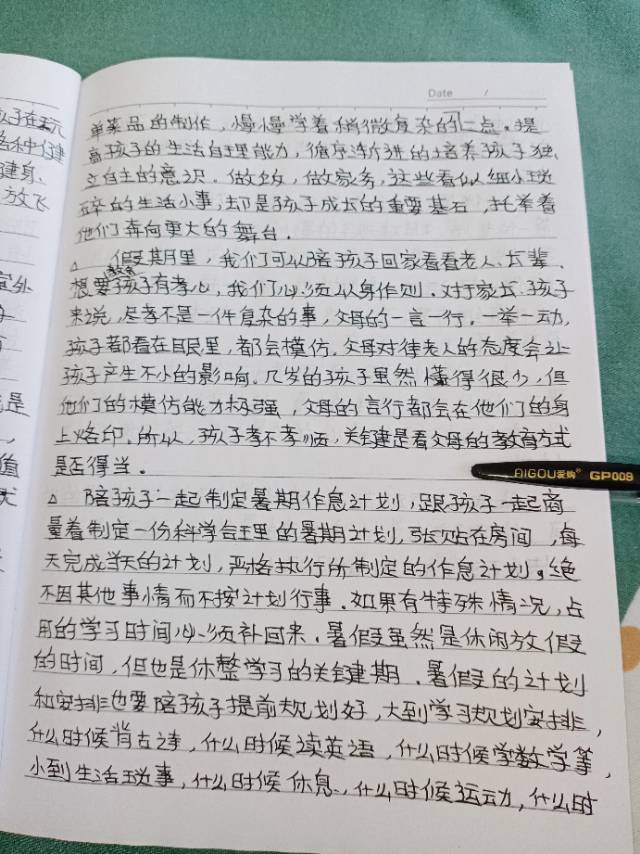 Date /
单菜品的制作，慢慢学着稍微复杂的一点。提
高孩子的生活自理能力，循序渐进的培养孩子独
立自主的意识。做饭，做家务，这些看似细小琐
碎的生活小事，却是孩子成长的重要基石，托举着
他们奔向更大的舞台。
△ 假期里，我们可以陪孩子回家看看老人、长辈。
想要教育孩子有孝心，我们必须以身作则。对于家长、孩子
来说，尽孝不是一件复杂的事，父母的一言一行，一举一动，
孩子都看在眼里，都会模仿。父母对待老人的态度会让
孩子产生不小的影响。几岁的孩子虽然懂得很少，但
他们的模仿能力极强，父母的言行都会在他们的身
上烙印。所以，孩子孝不孝顺，关键是看父母的教育方式
是否得当。
△ 陪孩子一起制定暑期作息计划，跟孩子一起商
量着制定一份科学合理的暑期计划，张贴在房间，每
天完成当天的计划，严格执行所制定的作息计划。绝
不因其他事情而不按计划行事。如果有特殊情况，占
用的学习时间必须补回来。暑假虽然是休闲放假
的时间，但也是休整学习的关键期。暑假的计划
和安排也要陪孩子提前规划好，大到学习规划安排，
什么时候背古诗，什么时候读英语，什么时候学数学等，
小到生活琐事，什么时候休息、什么时候运动，什么时
AIGOU爱购® GP009
孩子在玩
各种健
健身、
放飞
室外
是
值